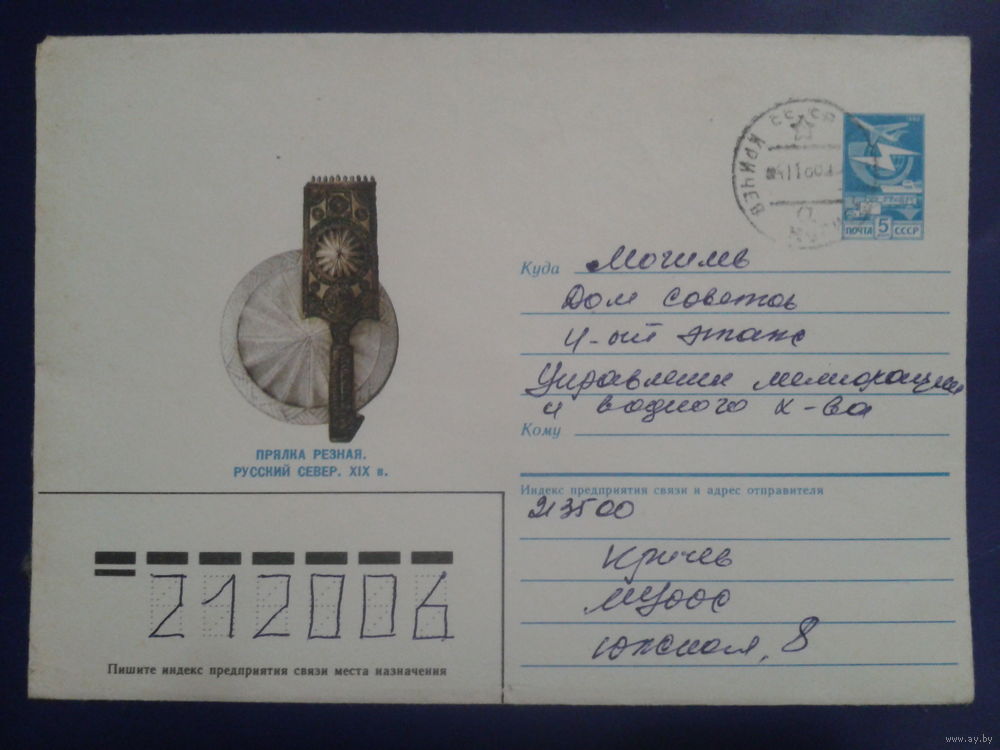 СССР
КРИЧЕВ
1982
ПОЧТА 5 СССР
Куда Могилев
Дом советов
4-ый этаж
Управление мелиорации
и водного х-ва
Кому
ПРЯЛКА РЕЗНАЯ.
РУССКИЙ СЕВЕР. XIX в.
Индекс предприятия связи и адрес отправителя
213500
Кричев
Южная, 8
212006
Пишите индекс предприятия связи места назначения
www.ay.by